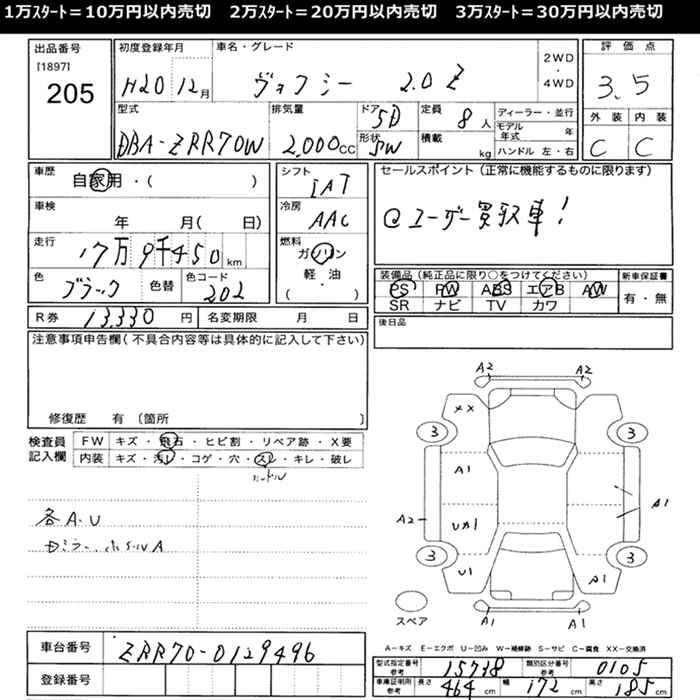 1万スタート=10万円以内売切　2万スタート=20万円以内売切　3万スタート=30万円以内売切
出品番号
[1897]
205
初度登録年月
H20 12月
車名・グレード
ヴォクシー 2.0 Z
2WD
・
4WD
評価点
3.5
外装
C
内装
C
型式
DBA-ZRR70W
排気量
2,000cc
ドア
5D
形状
SW
定員
8人
積載
kg
ディーラー・並行
モデル年式
年
ハンドル 左・右
車歴
自家用・(　　)
車検
年　月(　日)
走行
17万9千450km
色
ブラック
色替
色コード
202
シフト
IAT
冷房
AAC
燃料
ガソリン
軽・油
(　・　)
セールスポイント(正常に機能するものに限ります)
@ユーザー買取車!
装備品(純正品に限り○をつけてください)
PS PW ABS エアB AW
SR ナビ TV カワ
新車保証書
有・無
R券
13,330円
名変期限　月　日
後日品
注意事項申告欄(不具合内容等は具体的に記入して下さい)
修復歴　有〔箇所　〕
検査員
記入欄
FW キズ・飛石・ヒビ割・リペア跡・X要
内装 キズ・汚レ・コゲ・穴・スレ・キレ・破レ
ハンドル
各A.U
A2 A2
XX
3 3
A1
A1
A2
U1
A1
3 3
A1 A1
スペア
A-キズ E-エクボ U-凹み W-補修跡 S-サビ C-腐食 XX-交換済
車台番号
ZRR70-0129496
登録番号
型式指定番号
参考
15738
類別区分番号
参考
0105
車庫証明用
参考
長さ 464cm 幅 172cm 高さ 185cm